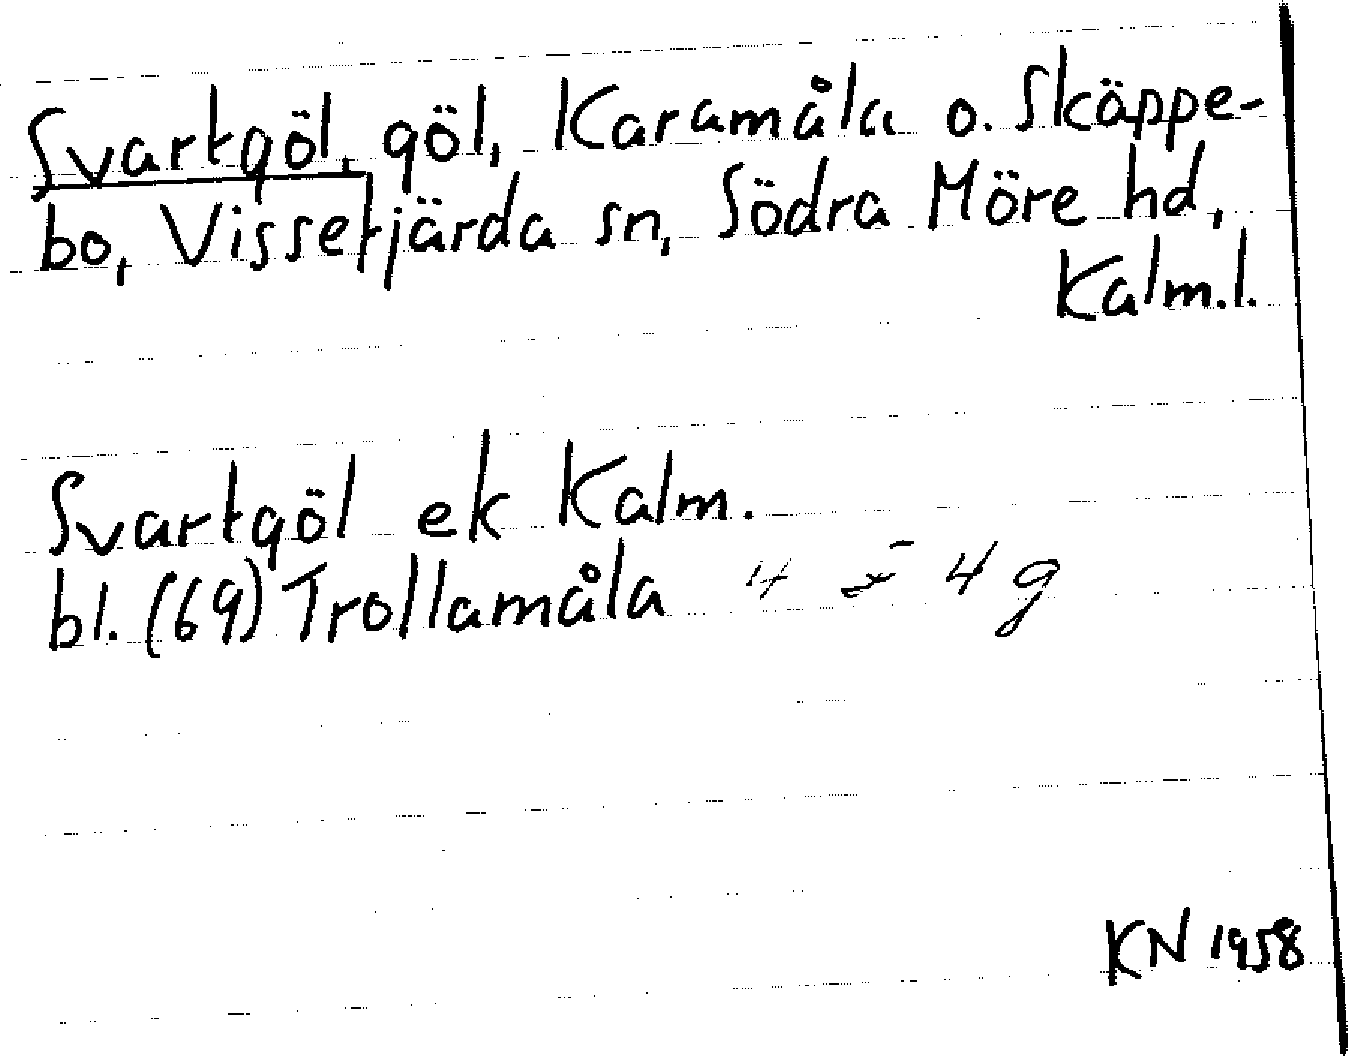 Svartgöl, göl, Karamåla o. Skäppe-
bo, Vissefjärda sn, Södra Möre hd,
Kalm.l.
Svartgöl ek Kalm.
bl. (69) Trollamåla 4 4 g
KN 1958